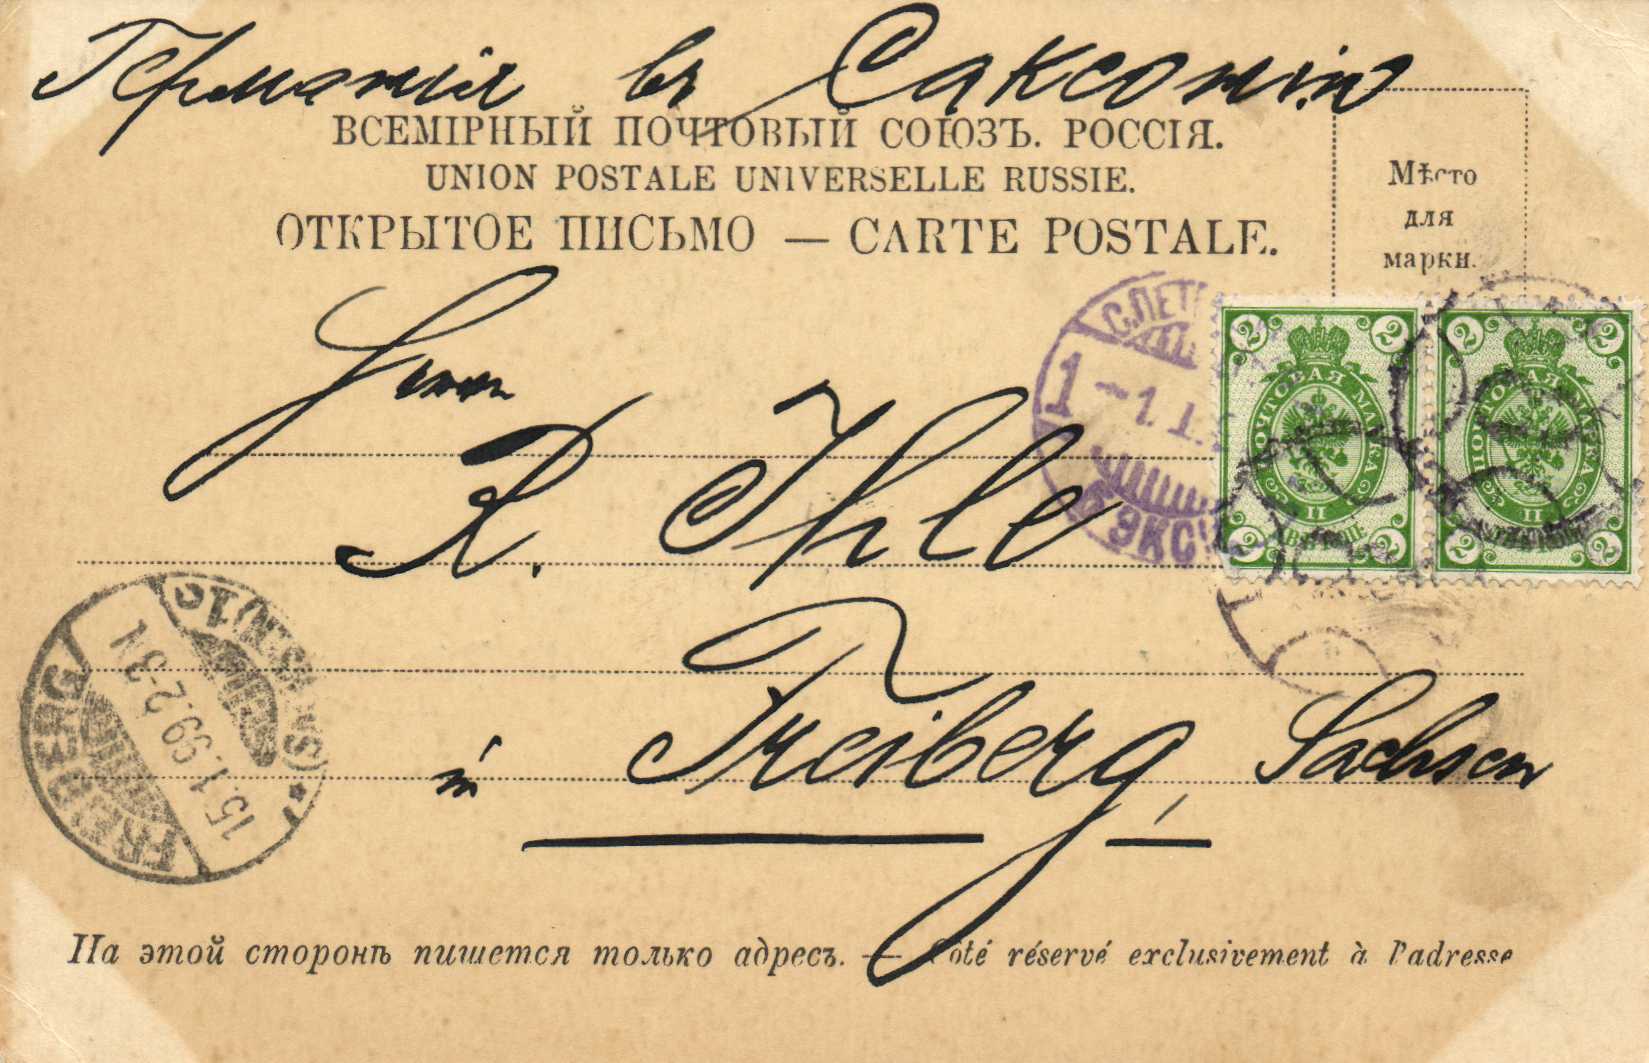 Германія въ Саксонію
ВСЕМІРНЫЙ ПОЧТОВЫЙ СОЮЗЪ. РОССІЯ.
UNION POSTALE UNIVERSELLE RUSSIE.
ОТКРЫТОЕ ПИСЬМО — CARTE POSTALE.
Мѣсто
для
марки.
С.ПЕТЕ
1 -1.1.
ЭКС
2 2
ПОЧТОВАЯ МАРКА
II
2 2
2 2
ПОЧТОВАЯ МАРКА
II
2 2
Herrn
R. Ihle
in Freiberg, Sachsen
FREIBERG (SACHSEN) 1c
15.1.99.2-3N
На этой сторонѣ пишется только адресъ. — Côté réservé exclusivement à l'adresse